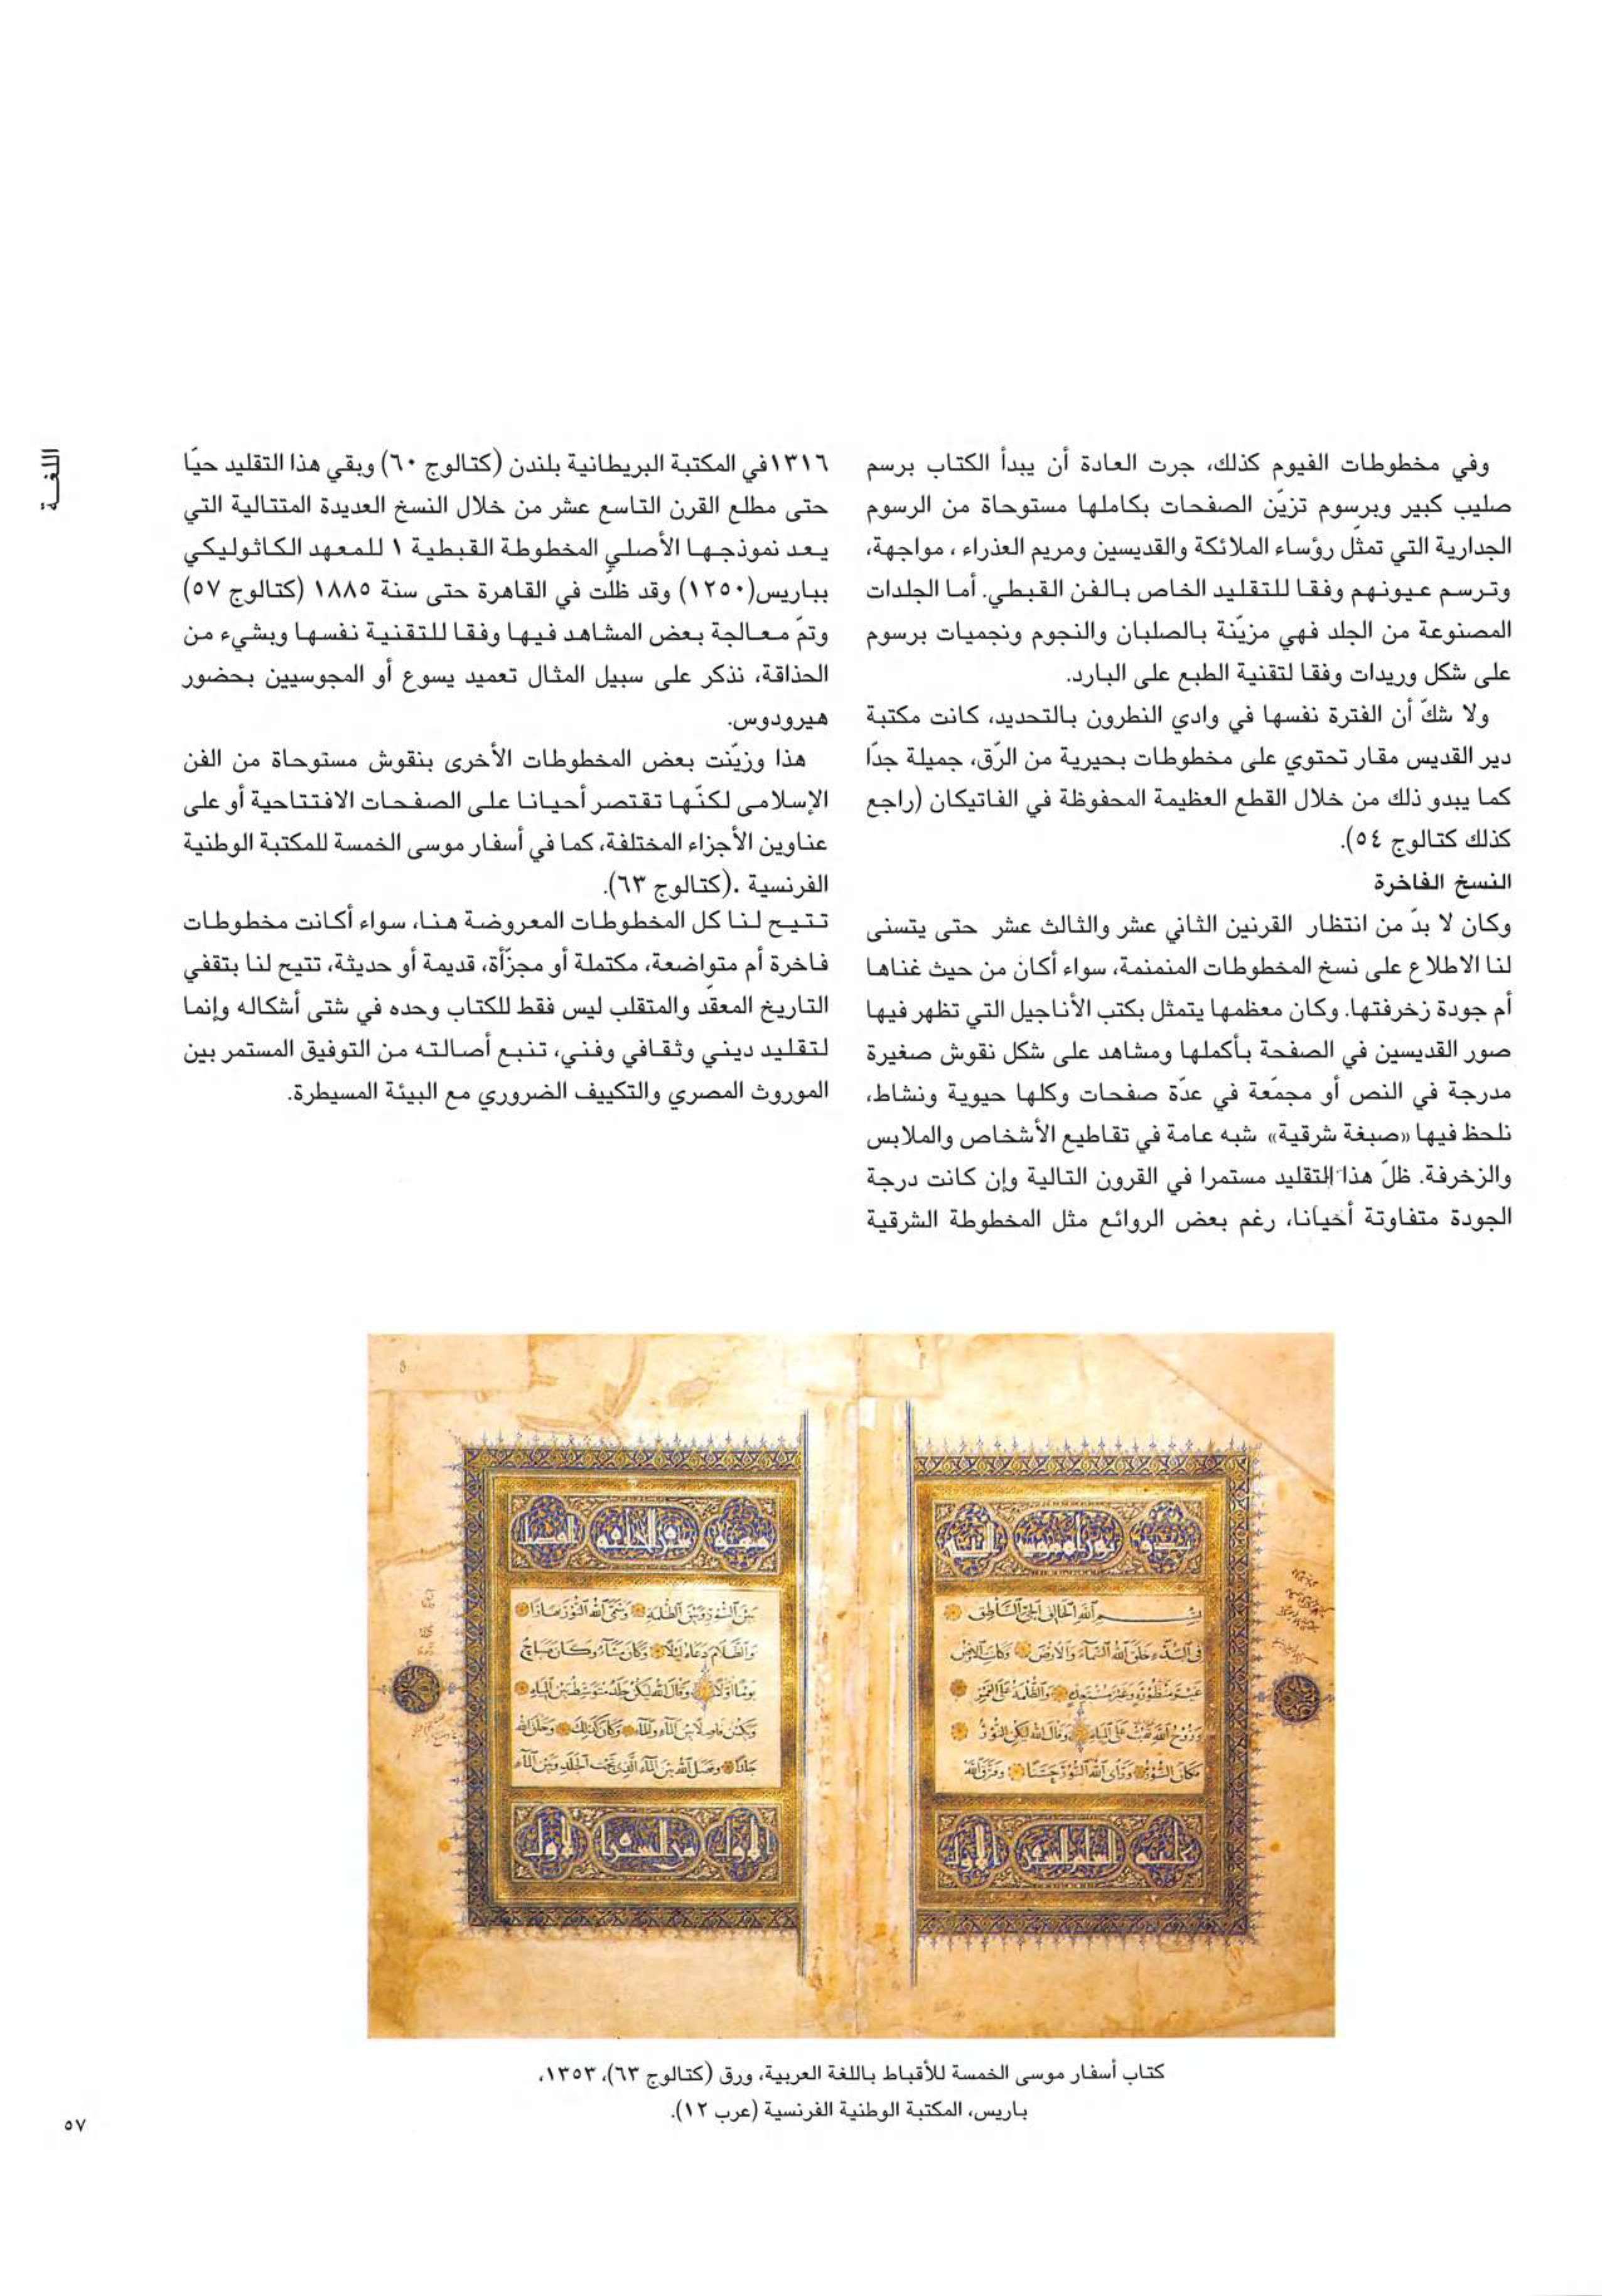 اللغـــة
وفي مخطوطات الفيوم كذلك، جرت العادة أن يبدأ الكتاب برسم
صليب كبير وبرسوم تزيّن الصفحات بكاملها مستوحاة من الرسوم
الجدارية التي تمثّل رؤساء الملائكة والقديسين ومريم العذراء ، مواجهة،
وترسم عيونهم وفقا للتقليد الخاص بالفن القبطي. أما الجلدات
المصنوعة من الجلد فهي مزيّنة بالصلبان والنجوم ونجميات برسوم
على شكل وريدات وفقا لتقنية الطبع على البارد.
ولا شكّ أن الفترة نفسها في وادي النطرون بالتحديد، كانت مكتبة
دير القديس مقار تحتوي على مخطوطات بحيرية من الرّق، جميلة جدّا
كما يبدو ذلك من خلال القطع العظيمة المحفوظة في الفاتيكان (راجع
كذلك كتالوج ٥٤).
النسخ الفاخرة
وكان لا بدّ من انتظار القرنين الثاني عشر والثالث عشر حتى يتسنى
لنا الاطلاع على نسخ المخطوطات المنمنمة، سواء أكان من حيث غناها
أم جودة زخرفتها. وكان معظمها يتمثل بكتب الأناجيل التي تظهر فيها
صور القديسين في الصفحة بأكملها ومشاهد على شكل نقوش صغيرة
مدرجة في النص أو مجمّعة في عدّة صفحات وكلها حيوية ونشاط،
نلحظ فيها «صبغة شرقية» شبه عامة في تقاطيع الأشخاص والملابس
والزخرفة. ظلّ هذا التقليد مستمرا في القرون التالية وإن كانت درجة
الجودة متفاوتة أحيانا، رغم بعض الروائع مثل المخطوطة الشرقية
١٣١٦في المكتبة البريطانية بلندن (كتالوج ٦٠) وبقي هذا التقليد حيّا
حتى مطلع القرن التاسع عشر من خلال النسخ العديدة المتتالية التي
يعد نموذجها الأصلي المخطوطة القبطية ١ للمعهد الكاثوليكي
بباريس(١٢٥٠) وقد ظلّت في القاهرة حتى سنة ١٨٨٥ (كتالوج ٥٧)
وتمّ معالجة بعض المشاهد فيها وفقا للتقنية نفسها وبشيء من
الحذاقة، نذكر على سبيل المثال تعميد يسوع أو المجوسيين بحضور
هيرودوس.
هذا وزيّنت بعض المخطوطات الأخرى بنقوش مستوحاة من الفن
الإسلامى لكنّها تقتصر أحيانا على الصفحات الافتتاحية أو على
عناوين الأجزاء المختلفة، كما في أسفار موسى الخمسة للمكتبة الوطنية
الفرنسية .(كتالوج ٦٣).
تتيح لنا كل المخطوطات المعروضة هنا، سواء أكانت مخطوطات
فاخرة أم متواضعة، مكتملة أو مجزّأة، قديمة أو حديثة، تتيح لنا بتقفي
التاريخ المعقّد والمتقلب ليس فقط للكتاب وحده في شتى أشكاله وإنما
لتقليد ديني وثقافي وفني، تنبع أصالته من التوفيق المستمر بين
الموروث المصري والتكييف الضروري مع البيئة المسيطرة.
فى البدء خلق الله السماء والارض وكانت الارض
كتاب أسفار موسى الخمسة للأقباط باللغة العربية، ورق (كتالوج ٦٣)، ١٣٥٣،
باريس، المكتبة الوطنية الفرنسية (عرب ١٢).
٥٧